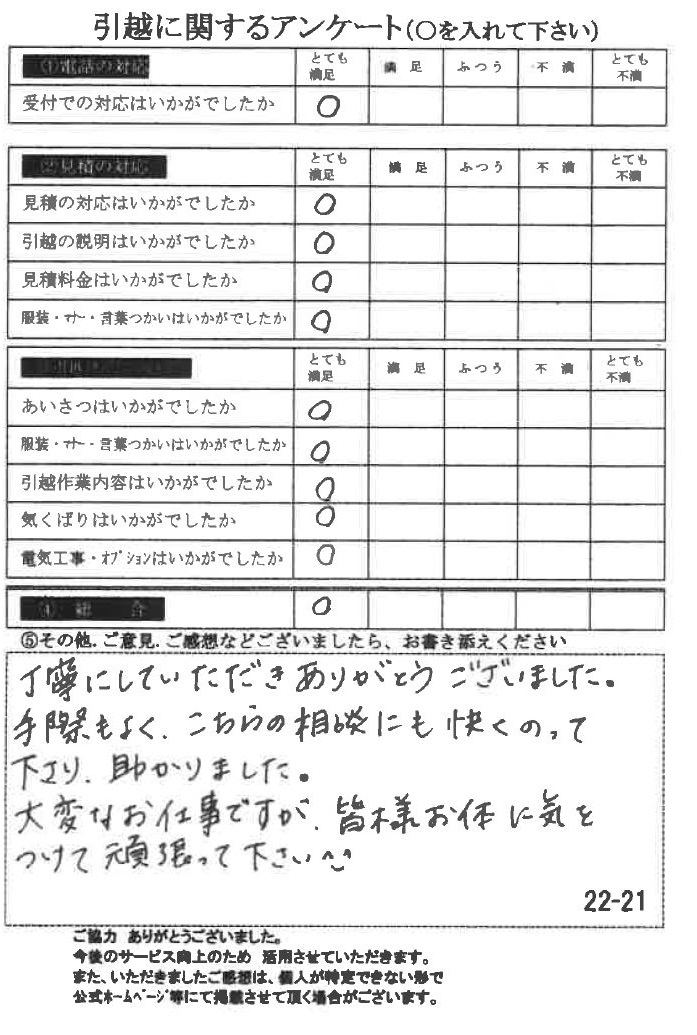 引越に関するアンケート(○を入れて下さい)
①電話の対応 とても満足 満足 ふつう 不満 とても不満
受付での対応はいかがでしたか ○
②見積の対応 とても満足 満足 ふつう 不満 とても不満
見積の対応はいかがでしたか ○
引越の説明はいかがでしたか ○
見積料金はいかがでしたか ○
服装・マナー・言葉つかいはいかがでしたか ○
とても満足 満足 ふつう 不満 とても不満
あいさつはいかがでしたか ○
服装・マナー・言葉つかいはいかがでしたか ○
引越作業内容はいかがでしたか ○
気くばりはいかがでしたか ○
電気工事・オプションはいかがでしたか ○
④総合 ○
⑤その他.ご意見.ご感想などございましたら、お書き添えください
丁寧にしていただきありがとうございました。
手際もよく、こちらの相談にも快くのって
下さり、助かりました。
大変なお仕事ですが、皆様お体に気を
つけて頑張って下さい^^
22-21
ご協力 ありがとうございました。
今後のサービス向上のため 活用させていただきます。
また、いただきましたご感想は、個人が特定できない形で
公式ホームページ等にて掲載させて頂く場合がございます。